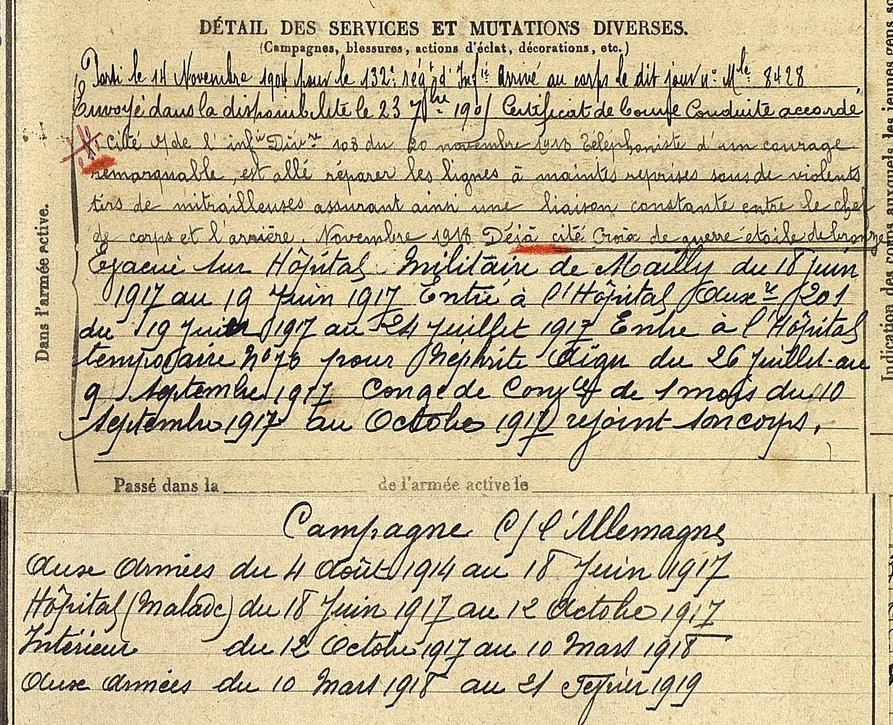 DÉTAIL DES SERVICES ET MUTATIONS DIVERSES.
(Campagnes, blessures, actions d'éclat, décorations, etc.)
Parti le 14 Novembre 1904 pour le 132e régt d'Infie Arrivé au corps le dit jour n° Mle 8428
Envoyé dans la disponibilité le 23 7bre 190 Certificat de bonne Conduite accordé
cité de l'infie Divre 108 du 20 novembre 1918 Téléphoniste d'un courage
remarquable, est allé réparer les lignes à maintes reprises sous de violents
tirs de mitrailleuses assurant ainsi une liaison constante entre le chef
de corps et l'arrière. Novembre 1918 Déjà cité Croix de guerre étoile de bronze
Evacué sur Hôpital Militaire de Mailly du 18 Juin
1917 au 19 Juin 1917 Entré à l'Hôpital Auxre 201
du 19 Juin 1917 au 24 Juillet 1917 Entré à l'Hôpital
temporaire N° 70 pour Néphrite Aigu du 26 Juillet au
9 Septembre 1917 Congé de Convce de 1 mois du 10
Septembre 1917 au Octobre 1917 rejoint son corps.
Passé dans la de l'armée active le
Campagne C/ l'Allemagne
Aux Armées du 4 Août 1914 au 18 Juin 1917
Hôpital (Malade) du 18 Juin 1917 au 12 Octobre 1917
Intérieur du 12 Octobre 1917 au 10 Mars 1918
Aux Armées du 10 Mars 1918 au 21 Février 1919
Dans l'armée active.